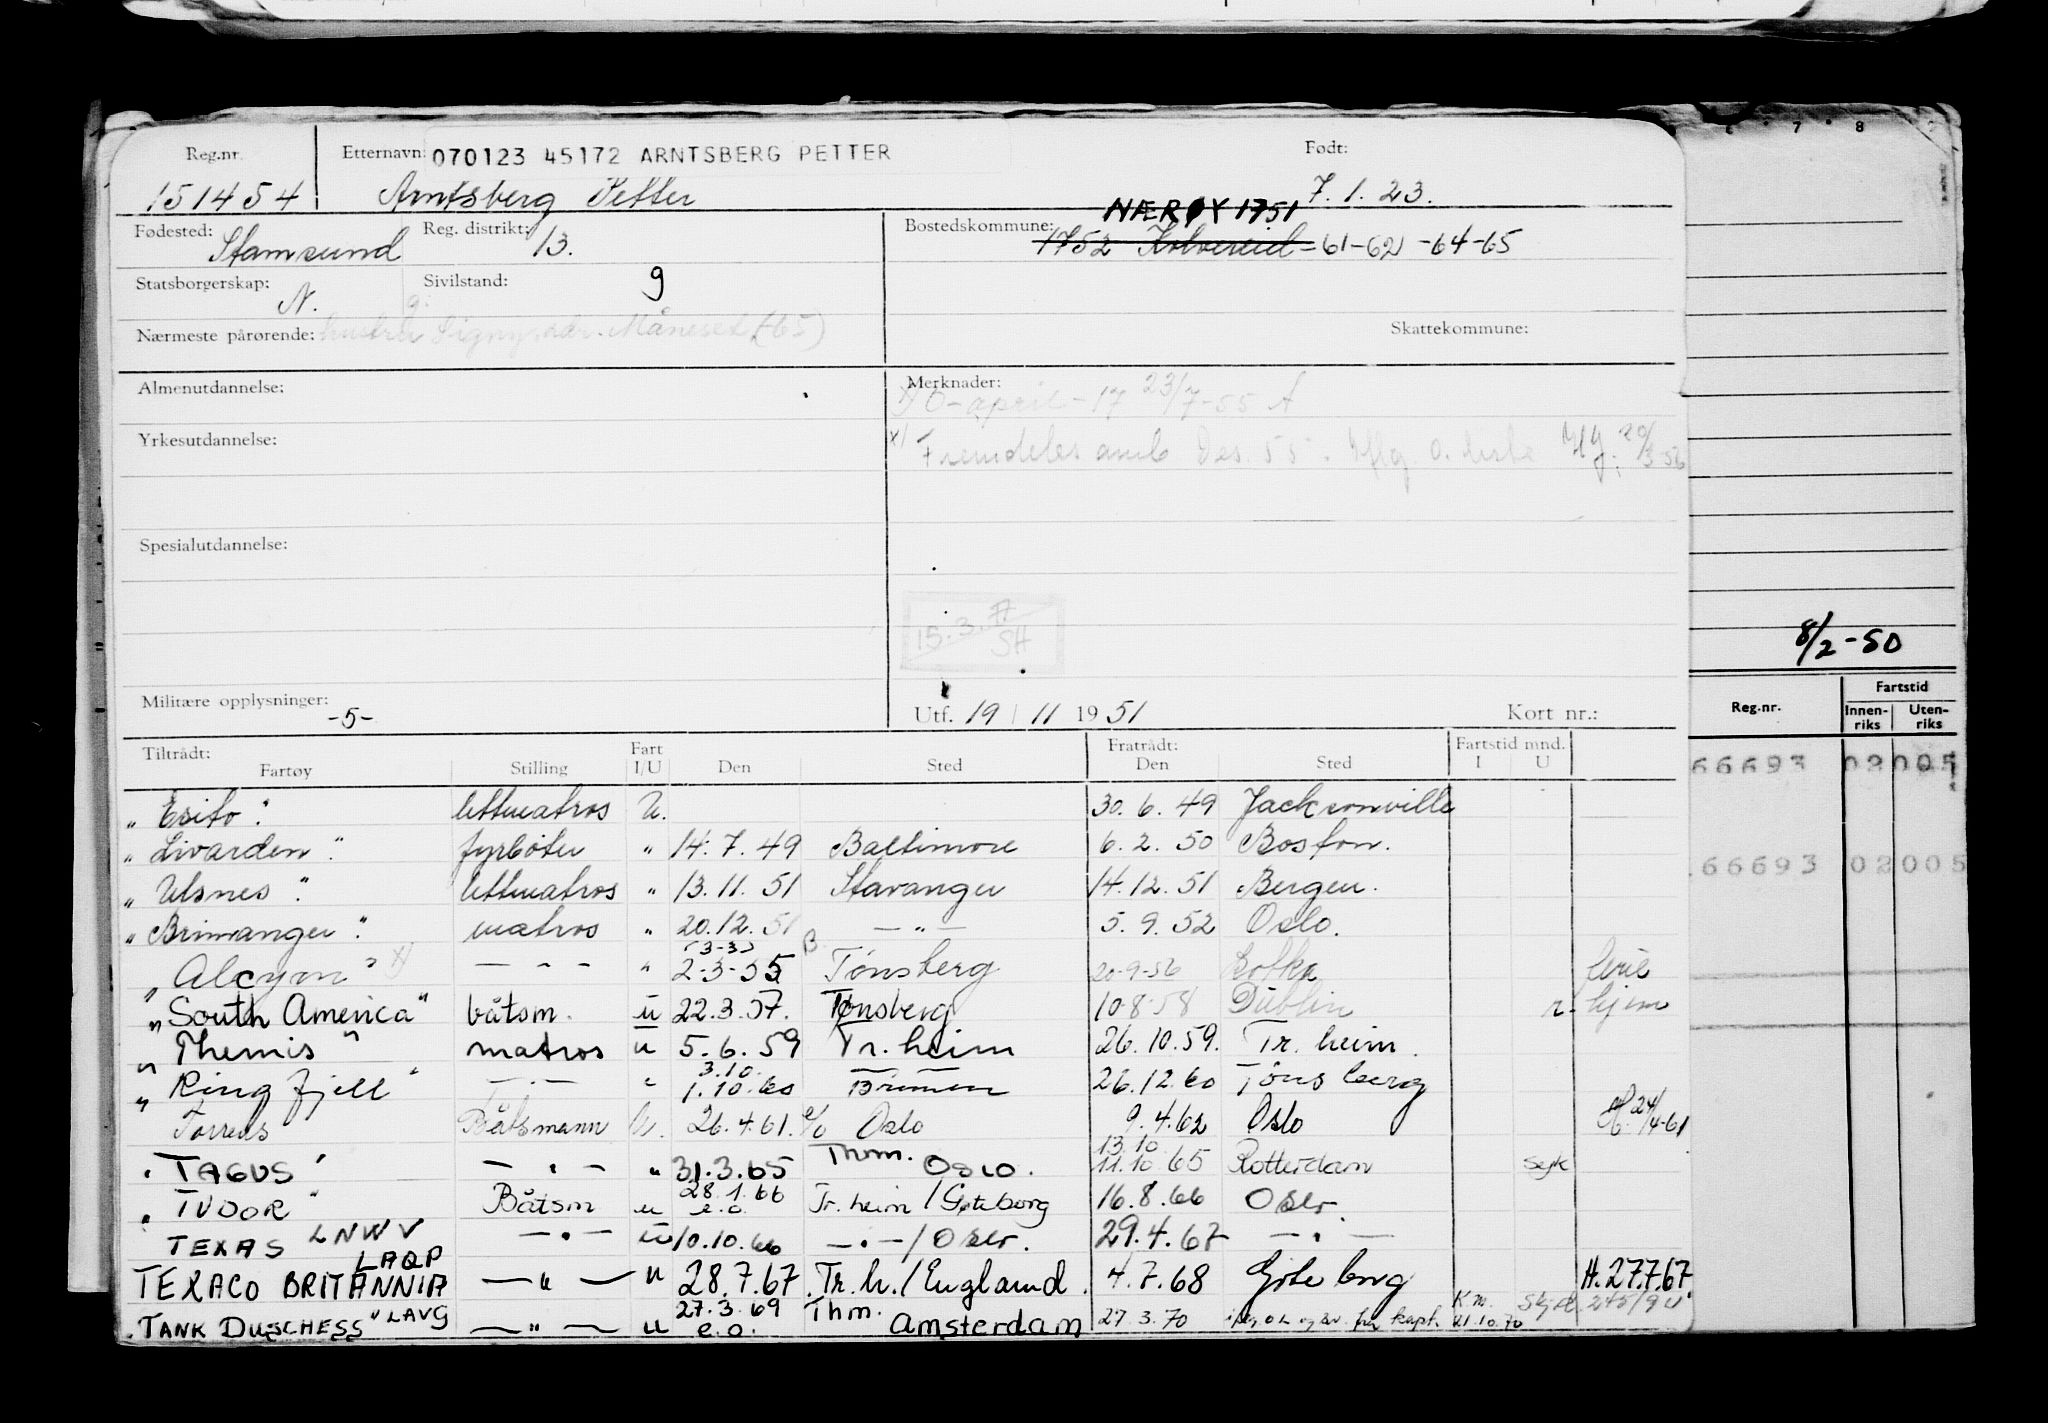 Reg.nr. Etternavn: 070123 45172 ARNTSBERG PETTER Født:
151454 Arntsberg Petter 7.1.23.
NÆRØY 1751
Fødested: Stamsund Reg. distrikt: 13. Bostedskommune: 1752 Kolvereid =61-62 -64-65
Statsborgerskap: N. Sivilstand: g
Nærmeste pårørende: hustru Signy, adr. Måneset (-65) Skattekommune:
Almenutdannelse: Merknader:
x) O-april-17 23/7-55
Yrkesutdannelse:
x) Fremdeles omb Des. 55. Iflg. o. liste 20/3-56
Spesialutdannelse:
15.3.77
SH
Militære opplysninger: -5- Utf. 19/11 1951 Kort nr.:
Tiltrådt: Fart Fratrådt: Fartstid mnd.
Fartøy Stilling I/U Den Sted Den Sted I U
"Esito". lettmatros U. 30.6.49 Jacksonville
"Livarden". fyrbøter " 14.7.49 Baltimore 6.2.50 Boston.
"Ulsnes". lettmatros " 13.11.51 Stavanger 14.12.51 Bergen.
"Brimanger". matros " 20.12.51 — " — 5.9.52 Oslo.
(3-3)
"Alcyon" x) — " — " 2-3-55 Tønsberg 20-9-56 Kotka ferie
"South America" båtsm. u 22.3.57. Tønsberg 10-8-58 Dublin r. hjem
"Themis" matros u 5.6.59 Tr.heim 26.10.59. Tr. heim.
3.10.
"Ringfjell" — " — " 1.10.60 Bremen 26.12.60 Tønsberg
Torrens Båtsmann U. 26.4.61. Oslo 9.4.62 Oslo 24/4-61
13.10
"TAGUS" — " — " 31.3.65 Thm. OSLO. 11.10.65 Rotterdam syk
28.1.66
"TUDOR" Båtsm u e.o. Tr.heim/Gøteborg 16.8.66 Oslo.
TEXAS LNWV — " — u 10.10.66 — " — / Oslo. 29.4.67 — " —
LAQP
TEXACO BRITANNIA — " — u 28.7.67. Tr.h./England. 4.7.68 Göteborg H.27.7.67
27.3.69
"TANK DUSCHESS" LAVG — " — u e.o. Thm. Amsterdam 27.3.70 kapt. 21.10.70
6 7 8
8/2-50
Fartstid
Reg.nr. Innen-riks Uten-riks
66693 02005
66693 02005